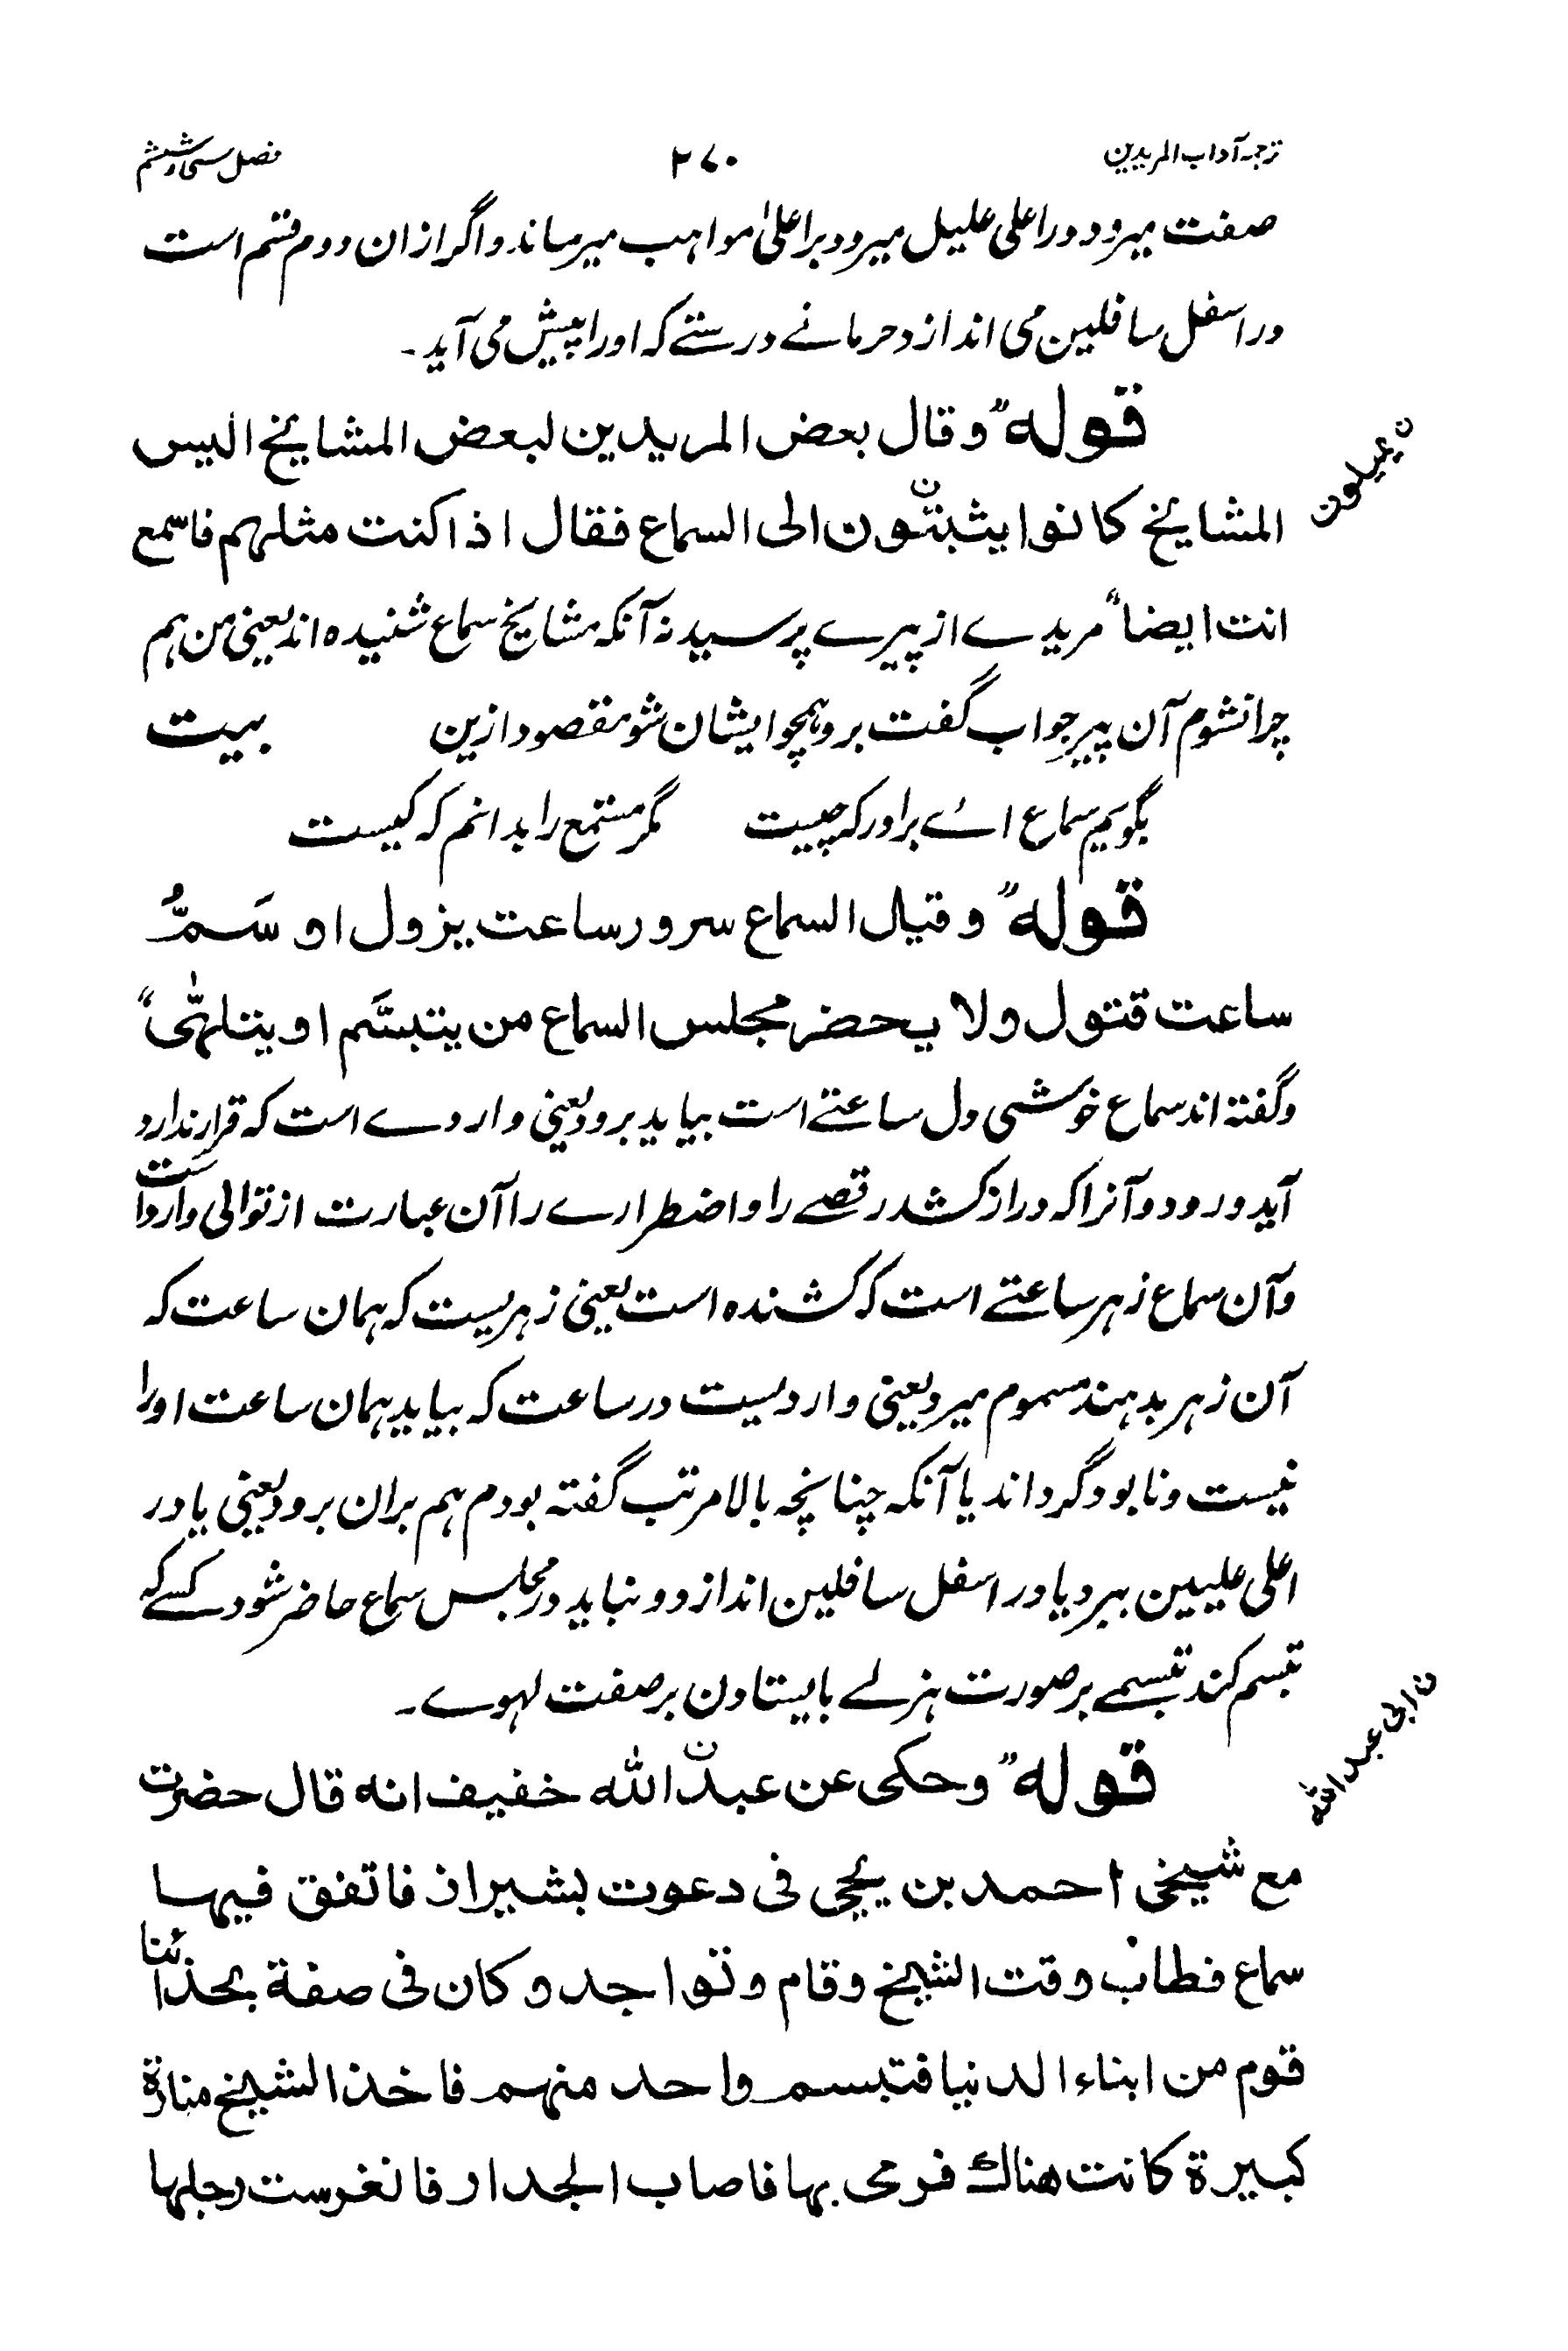 ترجمہ آداب المریدین
۲۷۰
فصل سی و ششم
صفت میرود در اعلی علیل میرود بر اعلیٰ مواہب میرساند و اگر ازان دوم قسم است
در اسفل سافلین می اندازد حرمانے درستے کہ او را پیش می آید۔
قوله "وقال بعض المریدین لبعض المشایخ الیس
المشایخ کانوا یثبتون الی السماع فقال اذا کنت مثلهم فاسمع
ن یمیلون
انت ایضا" مریدے از پیرے پرسید نہ آنکہ مشایخ سماع شنیدہ اند یعنی من ہم
چرا نشوم آن پیر جواب گفت برو ہمچو ایشان شو مقصود ازین بیت
بگویم سماع اے برادر کہ چیست مگر مستمع را بدانم کہ کیست
قوله "وقیل السماع سرور ساعت یزول او سَمٌّ
ساعت قتول ولا یحضر مجلس السماع من یتبسّم او یتلهّی"
وگفتہ اند سماع خوشی دل ساعتے است بیاید برود یعنی واردے است کہ قرار ندارد
آید و رود و آنرا کہ دراز کشد رقصے را و اضطرارے را آن عبارت از توالی واردات است
وآن سماع زہر ساعتے است کہ کشندہ است یعنی زہریست کہ ہمان ساعت کہ
آن زہر بدہند مسموم میرد یعنی واردیست در ساعت کہ بیاید ہمان ساعت او را
نیست و نابود گرداند یا آنکہ چنانچہ بالا مرتب گفتہ بودم ہم بران برود یعنی یا در
اعلی علیین ببرد یا در اسفل سافلین اندازد و نباید در مجلس سماع حاضر شود کسے کہ
تبسم کند تبسمے بر صورت ہزلے یا بیستادن بر صفت لہوے۔
قوله "وحکی عن عبد الله خفیف انه قال حضرت
ن ابی عبد الله
مع شیخی احمد بن یحیی فی دعوت بشیراز فاتفق فیها
سماع فطاب وقت الشیخ وقام وتواجد وکان فی صفة بحذائنا
قوم من ابناء الدنیا فتبسم واحد منهم فاخذ الشیخ منارة
کبیرة کانت هناك فرمی بها فاصاب الجدار فانغرست رجلها